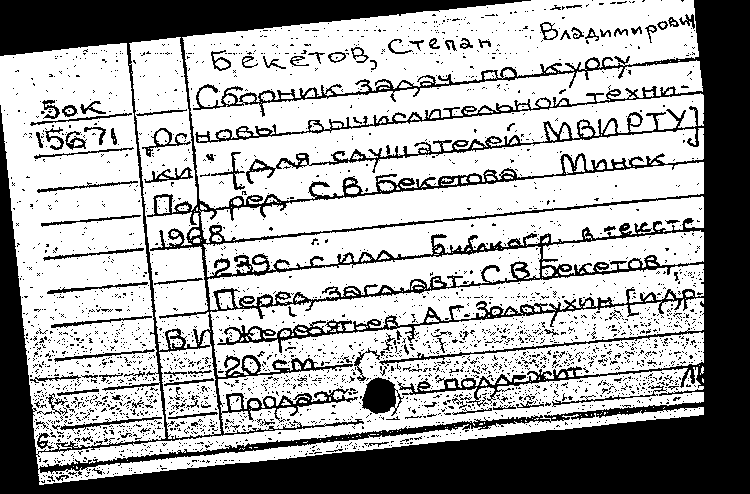 Бекетов, Степан Владимирович
Сборник задач по курсу
5ок
15671 "Основы вычислительной техни-
ки" [Для слушателей МВИРТУ]
Под ред. С.В. Бекетова. Минск,
1968.
239 с. с илл. Библиогр. в тексте
Перед загл. авт.: С.В. Бекетов,
В.И. Жеребятьев, А.Г. Золотухин [и др.
20 см.
Продаже не подлежит.